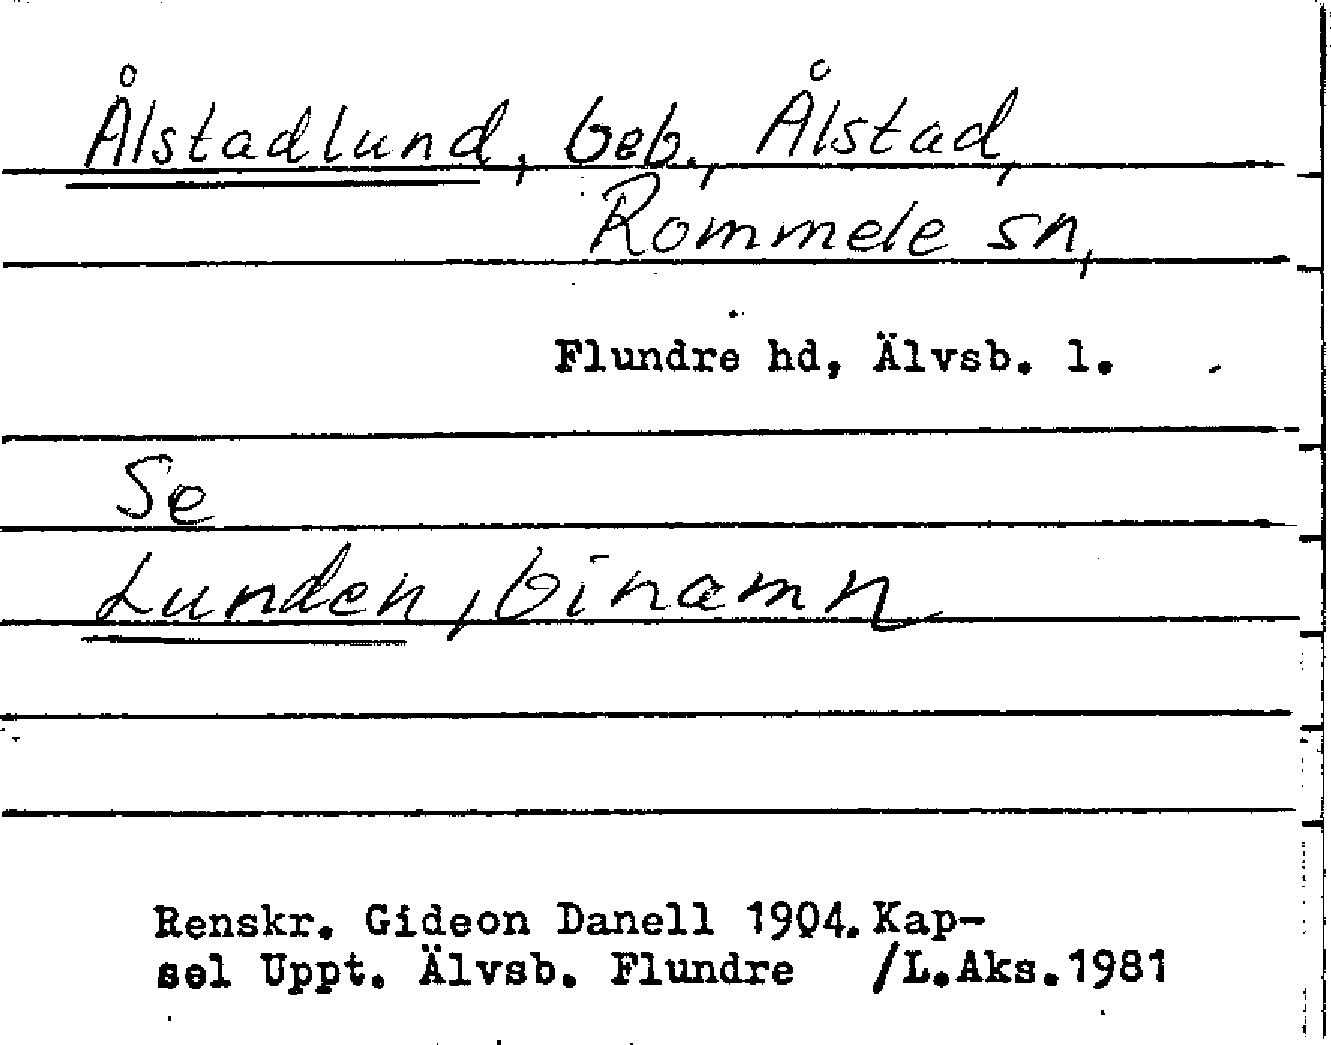 Ålstadlund, beb., Ålstad,
Rommele sn,
Flundre hd, Älvsb. l.
Se
Lunden, binamn
Renskr. Gideon Danell 1904. Kap-
sel Uppt. Älvsb. Flundre /L.Aks.1981